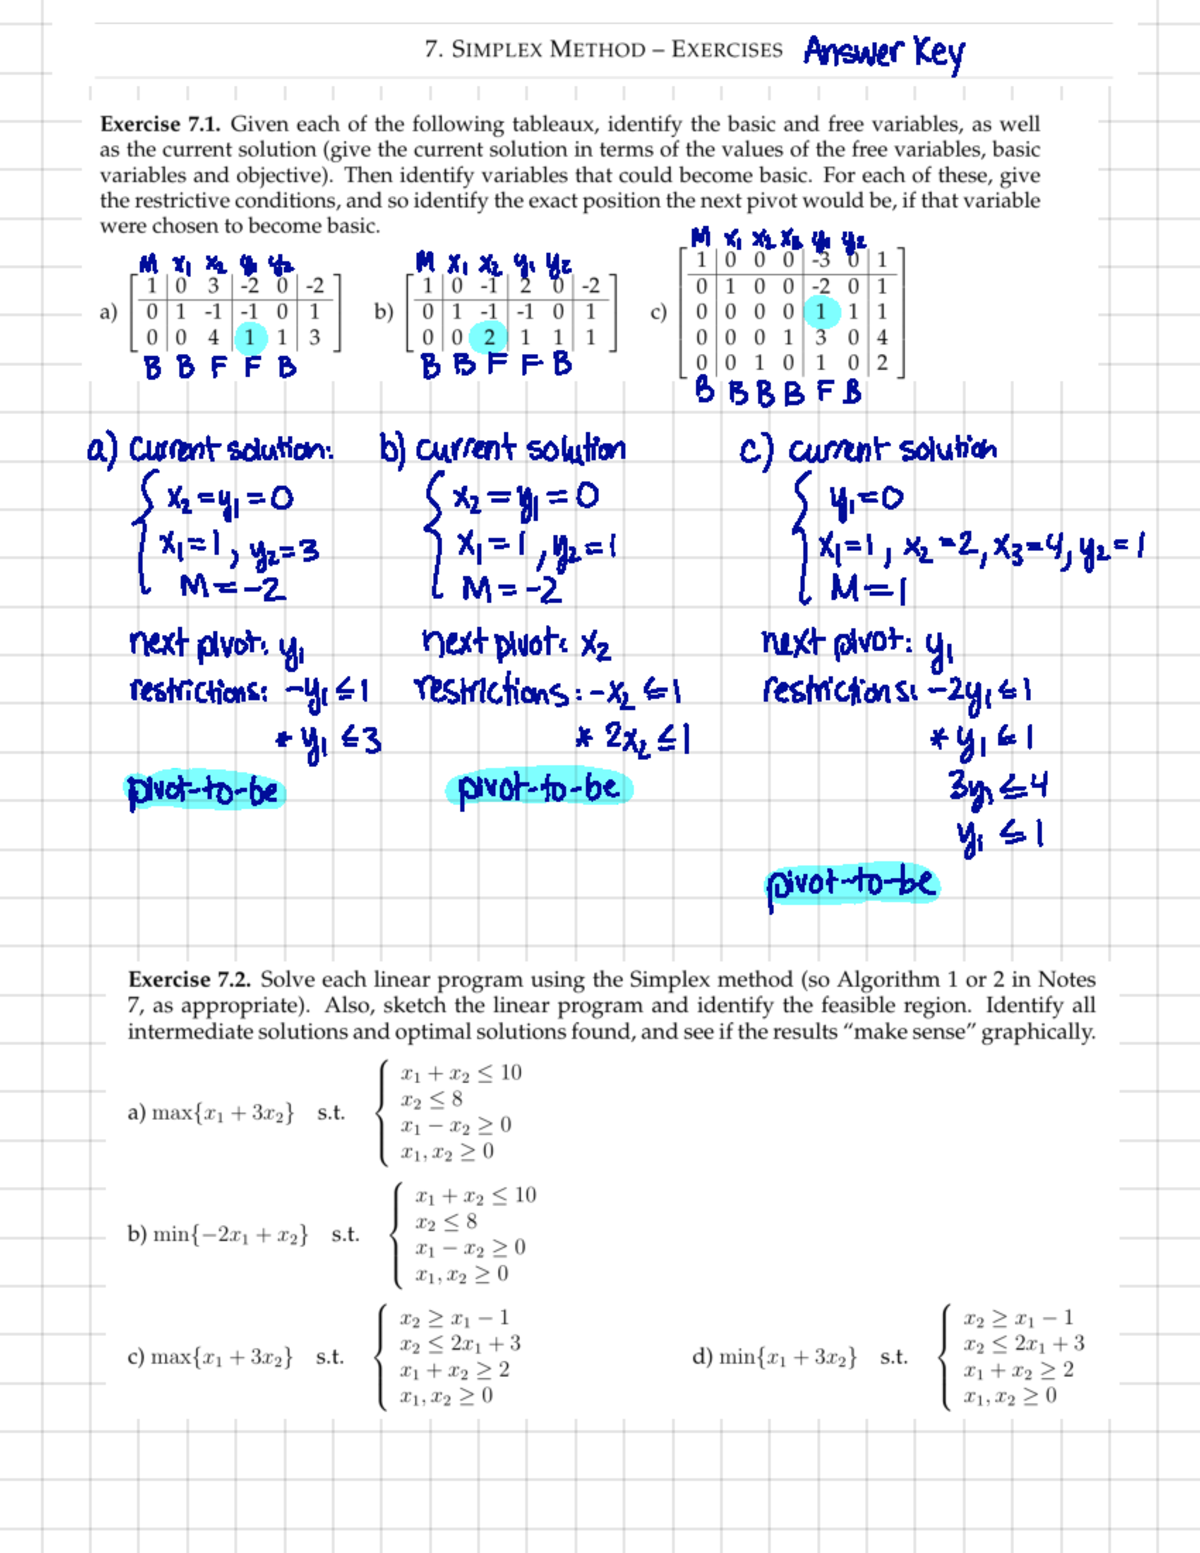 7. SIMPLEX METHOD – EXERCISES Answer Key
Exercise 7.1. Given each of the following tableaux, identify the basic and free variables, as well
as the current solution (give the current solution in terms of the values of the free variables, basic
variables and objective). Then identify variables that could become basic. For each of these, give
the restrictive conditions, and so identify the exact position the next pivot would be, if that variable
were chosen to become basic.
a)
M x₁ x₂ y₁ y₂
1 0 3 -2 0 -2
0 1 -1 -1 0 1
0 0 4 1 1 3
B B F F B
b)
M x₁ x₂ y₁ y₂
1 0 -1 2 0 -2
0 1 -1 -1 0 1
0 0 2 1 1 1
B B F F B
c)
M x₁ x₂ x₃ y₁ y₂
1 0 0 0 -3 0 1
0 1 0 0 -2 0 1
0 0 0 0 1 1 1
0 0 0 1 3 0 4
0 0 1 0 1 0 2
B B B B F B
a) current solution:
x₂ = y₁ = 0
x₁ = 1, y₂ = 3
M = -2
next pivot: y₁
restrictions: -y₁ ≤ 1
* y₁ ≤ 3
pivot-to-be
b) current solution
x₂ = y₁ = 0
x₁ = 1, y₂ = 1
M = -2
next pivot: x₂
restrictions: -x₂ ≤ 1
* 2x₂ ≤ 1
pivot-to-be
c) current solution
y₁ = 0
x₁ = 1, x₂ = 2, x₃ = 4, y₂ = 1
M = 1
next pivot: y₁
restrictions: -2y₁ ≤ 1
* y₁ ≤ 1
3y₁ ≤ 4
y₁ ≤ 1
pivot-to-be
Exercise 7.2. Solve each linear program using the Simplex method (so Algorithm 1 or 2 in Notes
7, as appropriate). Also, sketch the linear program and identify the feasible region. Identify all
intermediate solutions and optimal solutions found, and see if the results "make sense" graphically.
a) max{x₁ + 3x₂} s.t.
x₁ + x₂ ≤ 10
x₂ ≤ 8
x₁ − x₂ ≥ 0
x₁, x₂ ≥ 0
b) min{−2x₁ + x₂} s.t.
x₁ + x₂ ≤ 10
x₂ ≤ 8
x₁ − x₂ ≥ 0
x₁, x₂ ≥ 0
c) max{x₁ + 3x₂} s.t.
x₂ ≥ x₁ − 1
x₂ ≤ 2x₁ + 3
x₁ + x₂ ≥ 2
x₁, x₂ ≥ 0
d) min{x₁ + 3x₂} s.t.
x₂ ≥ x₁ − 1
x₂ ≤ 2x₁ + 3
x₁ + x₂ ≥ 2
x₁, x₂ ≥ 0